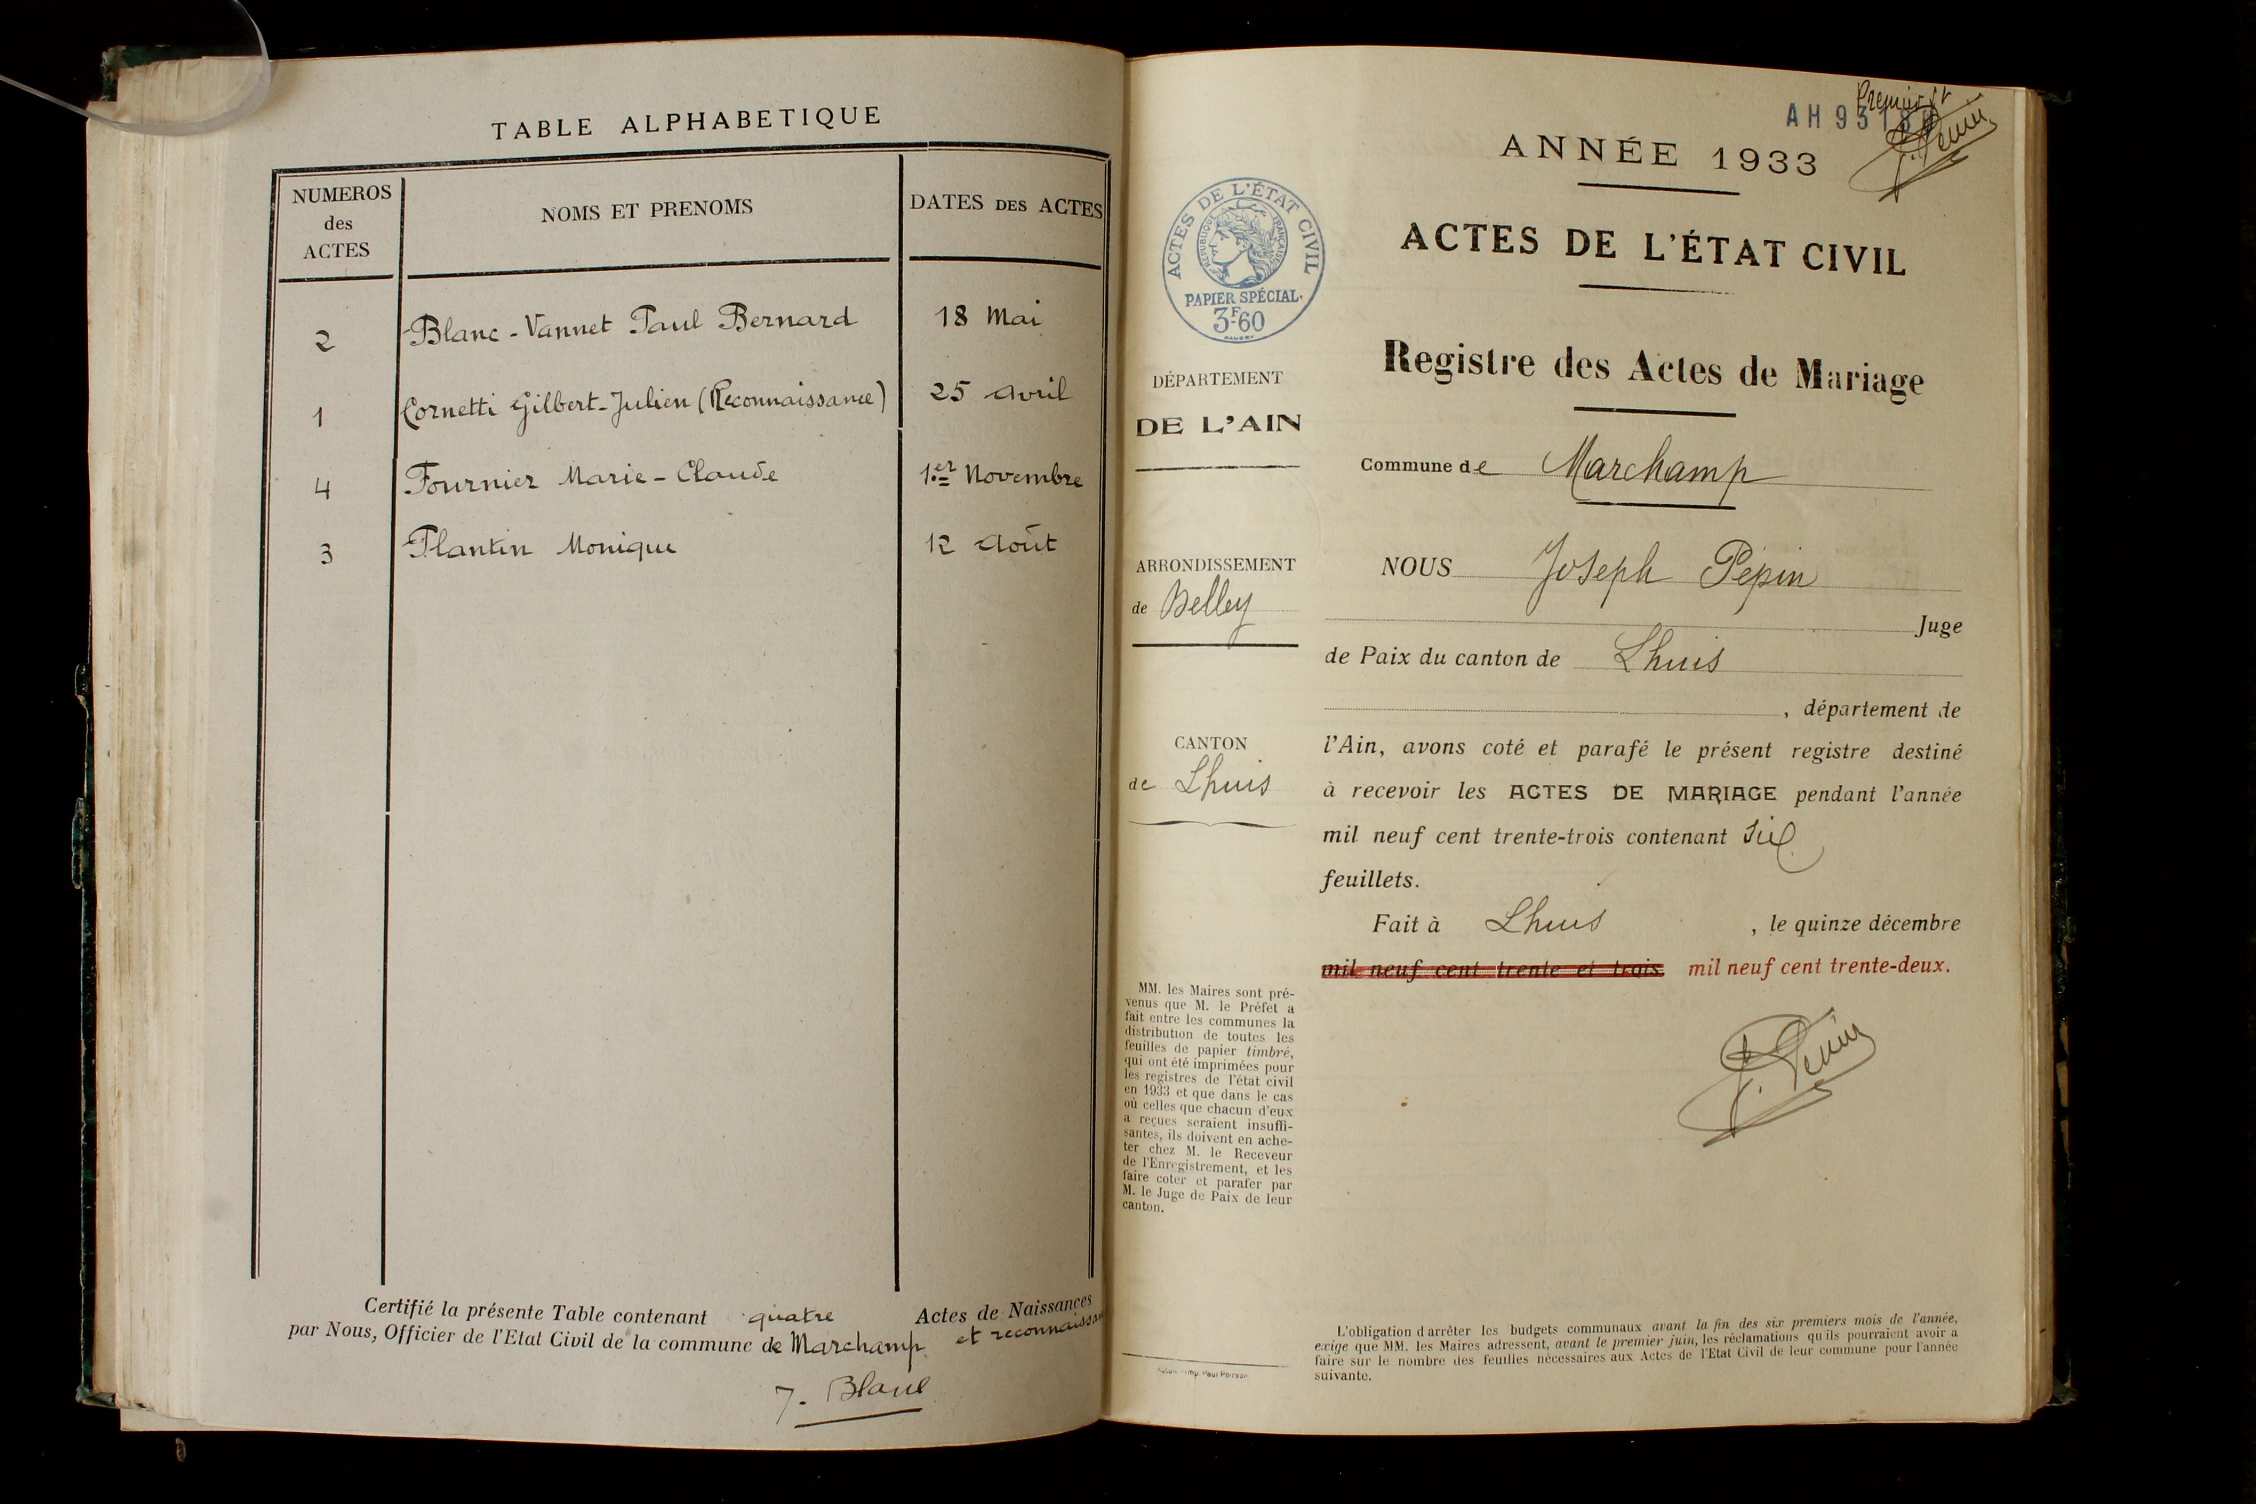 TABLE ALPHABETIQUE
NUMEROS
des
ACTES
NOMS ET PRENOMS
DATES DES ACTES
2 Blanc-Vannet Paul Bernard 18 Mai
1 Cornetti Gilbert-Julien (Reconnaissance) 25 avril
4 Fournier Marie-Claude 1er Novembre
3 Plantin Monique 12 Août
Certifié la présente Table contenant quatre Actes de Naissances
et reconnaissan
par Nous, Officier de l'Etat Civil de la commune de Marchamp
J. Blanc
Premier
AH 931
J. Pépin
ANNÉE 1933
ACTES DE L'ÉTAT CIVIL
Registre des Actes de Mariage
ACTES DE L'ÉTAT CIVIL
RÉPUBLIQUE FRANÇAISE
PAPIER SPÉCIAL.
3F60
DÉPARTEMENT
DE L'AIN
ARRONDISSEMENT
de Belley
CANTON
de Lhuis
MM. les Maires sont pré-
venus que M. le Préfet a
fait entre les communes la
distribution de toutes les
feuilles de papier timbré,
qui ont été imprimées pour
les registres de l'état civil
en 1933 et que dans le cas
où celles que chacun d'eux
a reçues seraient insuffi-
santes, ils doivent en ache-
ter chez M. le Receveur
de l'Enregistrement, et les
faire coter et parafer par
M. le Juge de Paix de leur
canton.
Imp. Paul
Commune de Marchamp
NOUS Joseph Pépin
Juge
de Paix du canton de Lhuis
, département de
l'Ain, avons coté et parafé le présent registre destiné
à recevoir les ACTES DE MARIAGE pendant l'année
mil neuf cent trente-trois contenant six
feuillets.
Fait à Lhuis , le quinze décembre
mil neuf cent trente et trois mil neuf cent trente-deux.
J. Pépin
L'obligation d'arrêter les budgets communaux avant la fin des six premiers mois de l'année,
exige que MM. les Maires adressent, avant le premier juin, les réclamations qu'ils pourraient avoir à
faire sur le nombre des feuilles nécessaires aux Actes de l'Etat Civil de leur commune pour l'année
suivante.